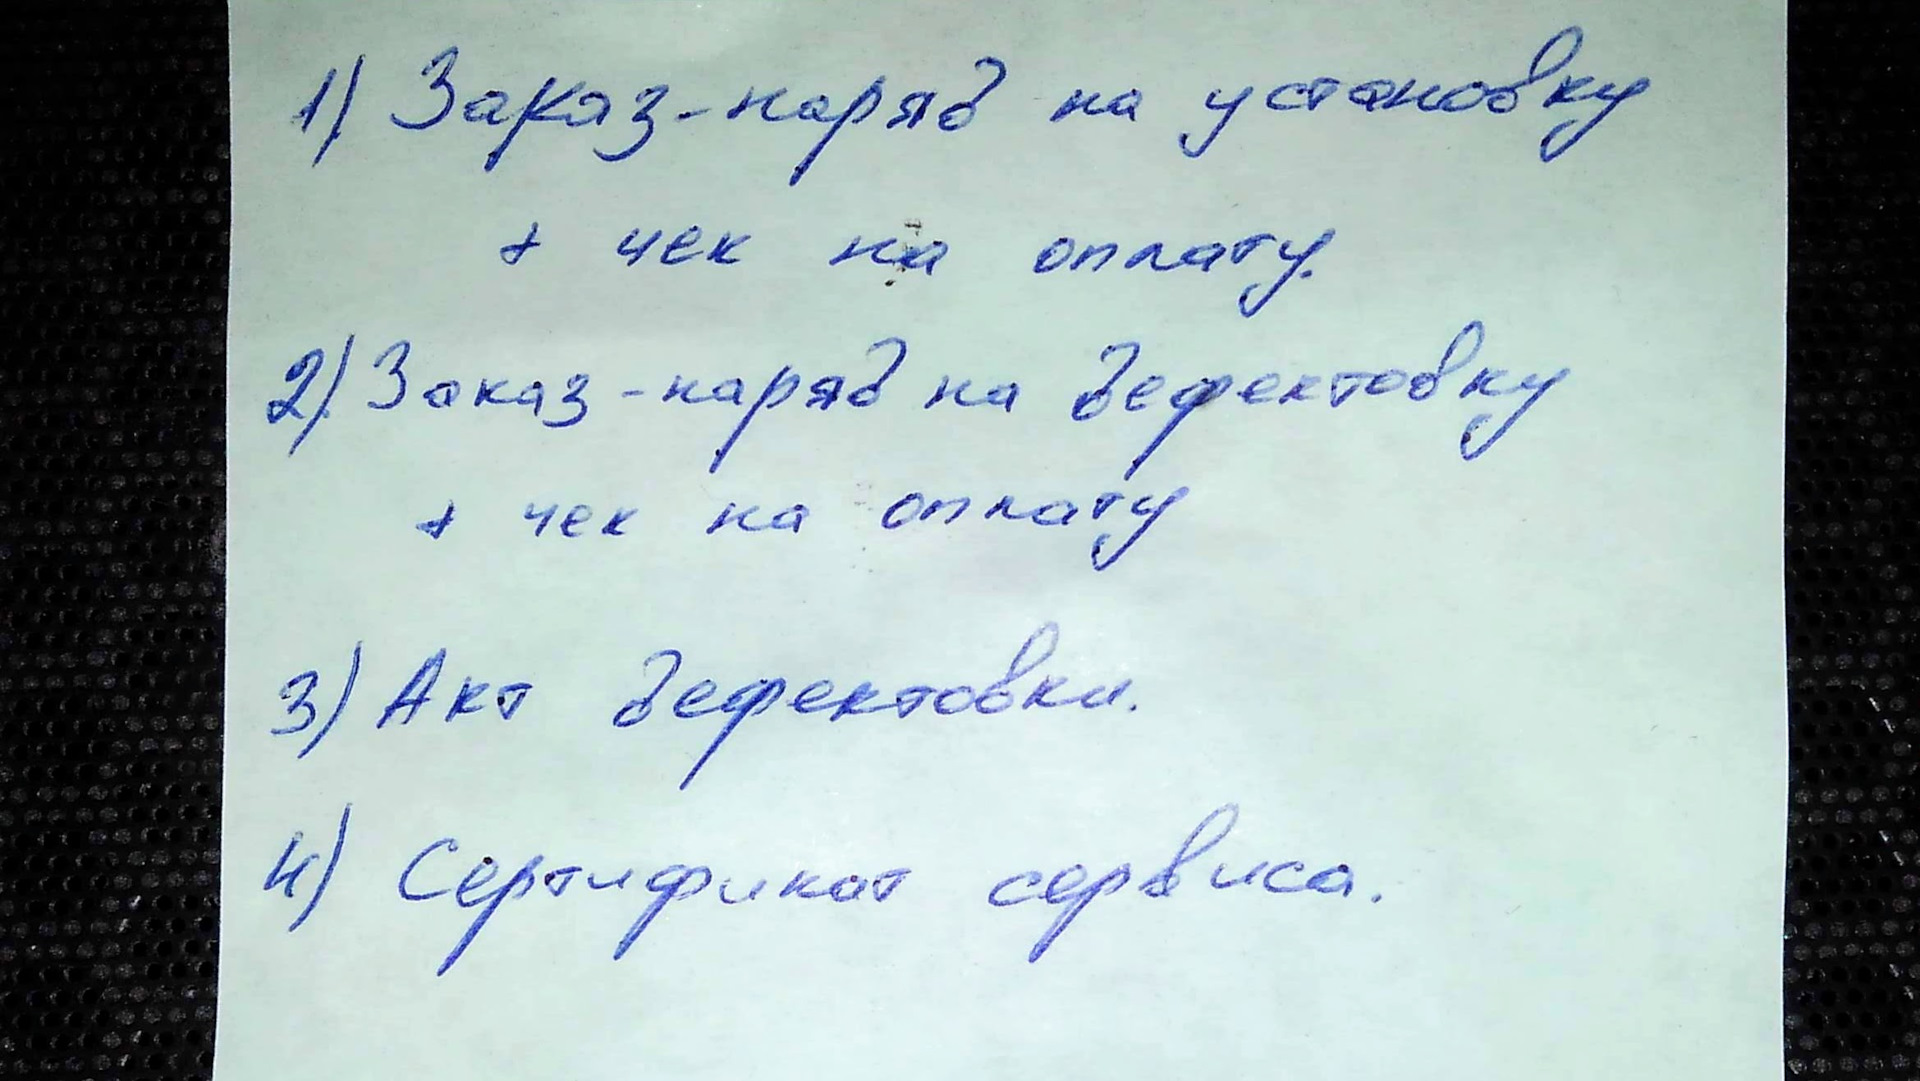 1) Заказ-наряд на установку
+ чек на оплату.
2) Заказ-наряд на дефектовку
+ чек на оплату
3) Акт дефектовки.
4) Сертификат сервиса.